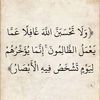 ﴿وَلَا تَحْسَبَنَّ اللَّهَ غَافِلًا عَمَّا
يَعْمَلُ الظَّالِمُونَ ۚ إِنَّمَا يُؤَخِّرُهُمْ
لِيَوْمٍ تَشْخَصُ فِيهِ الْأَبْصَارُ﴾